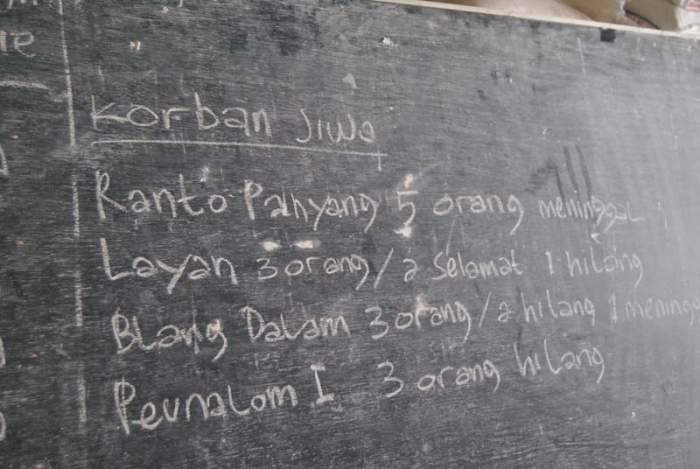 re
Korban Jiwa
Ranto Pahyang 5 orang meninggal
Layan 3 orang / 2 Selamat 1 hilang
Blang Dalam 3 orang / 2 hilang 1 mening
Peunalom I 3 orang hilang